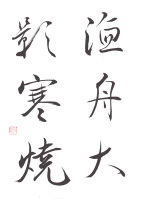 漁舟火
影寒燒